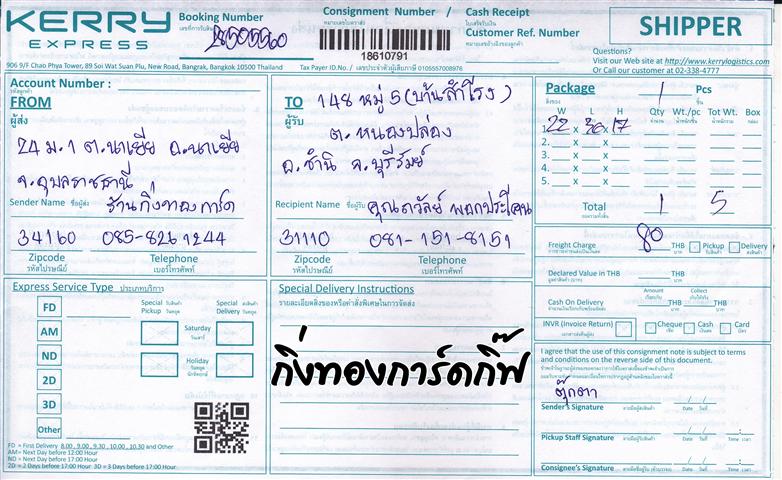 KERRY EXPRESS
Booking Number
Consignment Number / Cash Receipt
หมายเลขใบตราส่ง / ใบเสร็จรับเงิน
Customer Ref. Number
หมายเลขอ้างอิงของลูกค้า
SHIPPER
18610791
Questions?
Visit our Web site at http://www.kerrylogistics.com
Or Call our customer at 02-338-4777
906 9/F Chao Phya Tower, 89 Soi Wat Suan Plu, New Road, Bangrak, Bangkok 10500 Thailand
Tax Payer ID.No./ เลขประจำตัวผู้เสียภาษี 0105557008976
Account Number :
รหัสลูกค้า
FROM
ผู้ส่ง
24 ม.1 ต.นาเยีย อ.นาเยีย
จ.อุบลราชธานี
Sender Name ชื่อผู้ส่ง ร้านกิ่งทองการ์ด
34160 085-826 1244
Zipcode Telephone
รหัสไปรษณีย์ เบอร์โทรศัพท์
TO
ผู้รับ
148 หมู่ 5 (บ้านสำโรง)
ต. หนองปล่อง
อ. ชำนิ จ. บุรีรัมย์
Recipient Name ชื่อผู้รับ คุณถวัลย์
31110 081-151-8151
Zipcode Telephone
รหัสไปรษณีย์ เบอร์โทรศัพท์
Package 1 Pcs
สิ่งของ ชิ้น
W L H Qty Wt./pc Tot Wt. Box
1. 22 x 30 x 17
2. x x
3. x x
4. x x
5. x x
Total 1 5
Freight Charge 80 THB Pickup Delivery
Declared Value in THB THB
Amount Collect
Cash On Delivery THB THB
INVR (Invoice Return) Cheque Cash Card
Express Service Type ประเภทบริการ
Special Pickup Special Delivery
FD
AM Saturday วันเสาร์
ND Holiday
2D
3D
Other
FD = First Delivery 8.00 , 9.00 , 9.30 , 10.00 , 10.30 and Other
AM = Next Day before 12:00 Hour
ND = Next Day before 17:00 Hour
2D = 2 Days before 17:00 Hour 3D = 3 Days before 17:00 Hour
Special Delivery Instructions
รายละเอียดสิ่งของหรือคำสั่งพิเศษในการจัดส่ง
กิ่งทองการ์ดกิ๊ฟ
I agree that the use of this consignment note is subject to terms
and conditions on the reverse side of this document.
ตุ๊กตา
Sender's Signature Date วันที่
Pickup Staff Signature Date วันที่ Time เวลา
Consignee's Signature Date วันที่ Time เวลา